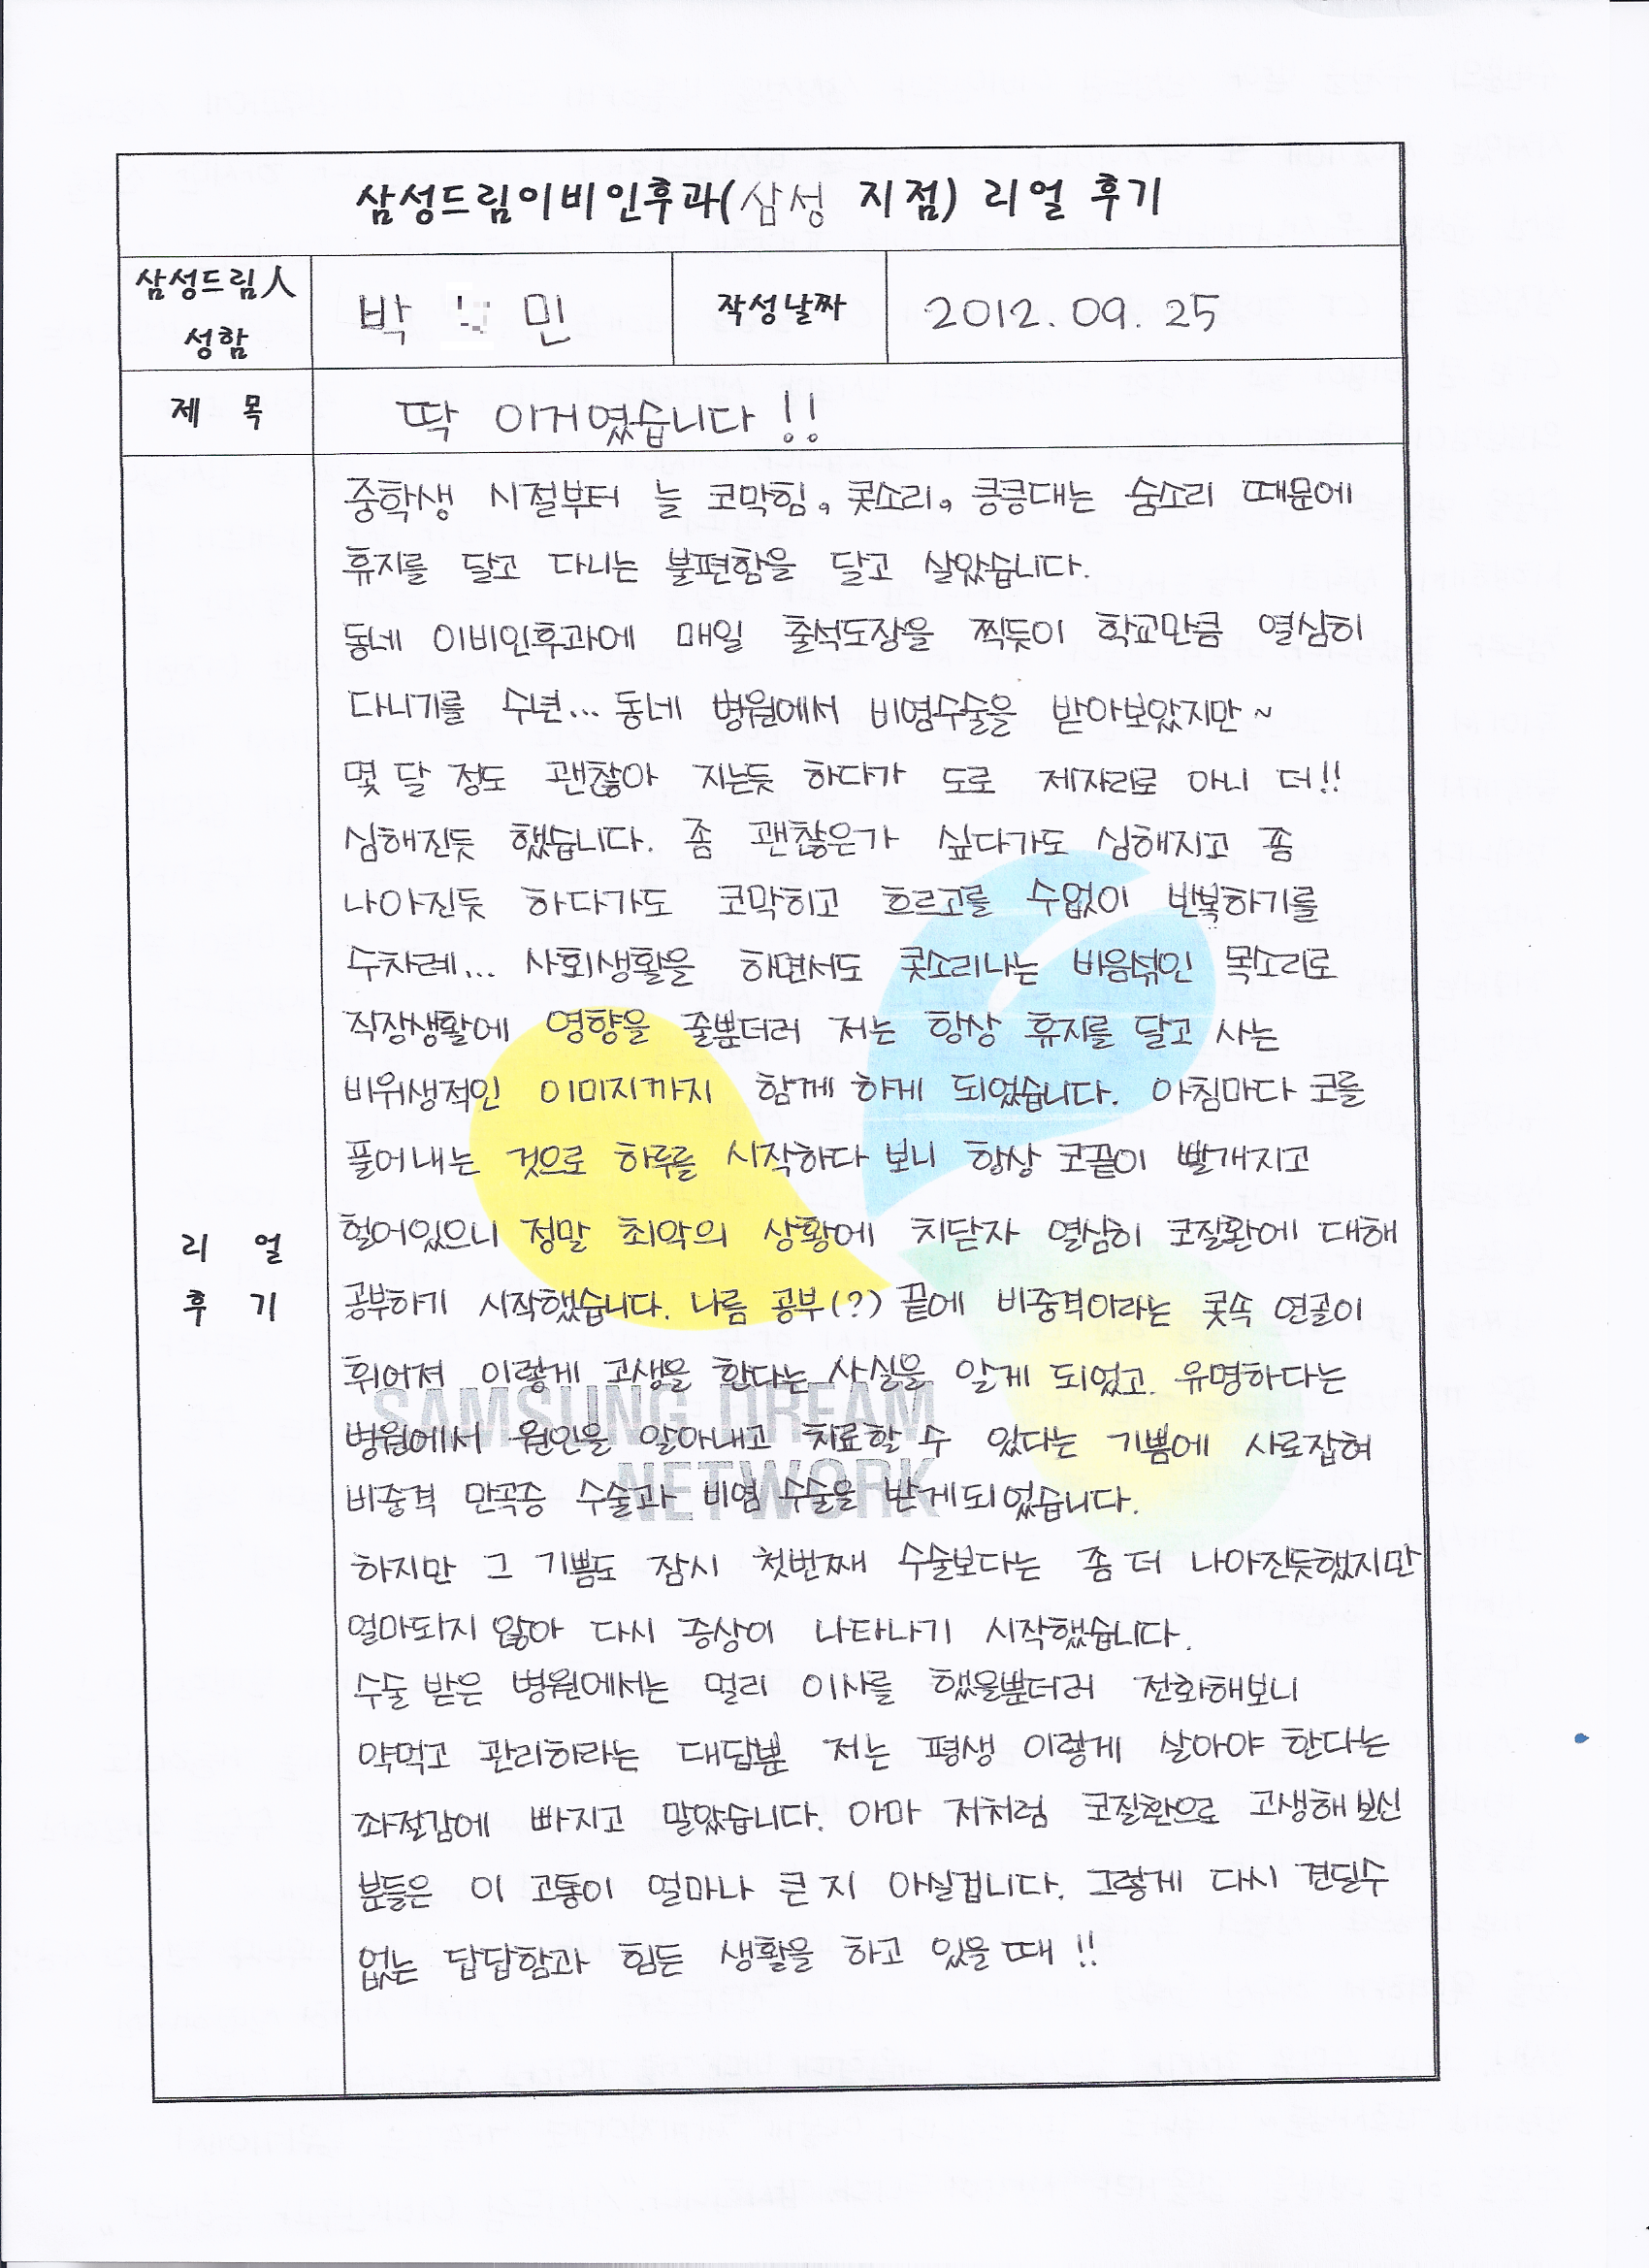 삼성드림이비인후과(삼성 지점) 리얼 후기
삼성드림人
성함
박 민
작성날짜
2012. 09. 25
제 목
딱 이거였습니다!!
리 얼
후 기
중학생 시절부터 늘 코막힘, 콧소리, 킁킁대는 숨소리 때문에
휴지를 달고 다니는 불편함을 달고 살았습니다.
동네 이비인후과에 매일 출석도장을 찍듯이 학교만큼 열심히
다니기를 수년... 동네 병원에서 비염수술을 받아보았지만~
몇 달 정도 괜찮아 지는듯 하다가 도로 제자리로 아니 더!!
심해진듯 했습니다. 좀 괜찮은가 싶다가도 심해지고 좀
나아진듯 하다가도 코막히고 흐르고를 수없이 반복하기를
수차례... 사회생활을 하면서도 콧소리나는 비음섞인 목소리로
직장생활에 영향을 줄뿐더러 저는 항상 휴지를 달고 사는
비위생적인 이미지까지 함께 하게 되었습니다. 아침마다 코를
풀어내는 것으로 하루를 시작하다 보니 항상 코끝이 빨개지고
헐어있으니 정말 최악의 상황에 치닫자 열심히 코질환에 대해
공부하기 시작했습니다. 나름 공부(?) 끝에 비중격이라는 콧속 연골이
휘어져 이렇게 고생을 한다는 사실을 알게 되었고. 유명하다는
병원에서 원인을 알아내고 치료할 수 있다는 기쁨에 사로잡혀
비중격 만곡증 수술과 비염 수술을 받게되었습니다.
하지만 그 기쁨도 잠시 첫번째 수술보다는 좀 더 나아진듯했지만
얼마되지 않아 다시 증상이 나타나기 시작했습니다.
수술 받은 병원에서는 멀리 이사를 했을뿐더러 전화해보니
약먹고 관리하라는 대답뿐 저는 평생 이렇게 살아야 한다는
좌절감에 빠지고 말았습니다. 아마 저처럼 코질환으로 고생해 보신
분들은 이 고통이 얼마나 큰 지 아실겁니다. 그렇게 다시 견딜수
없는 답답함과 힘든 생활을 하고 있을 때 !!
SAMSUNG DREAM
NETWORK